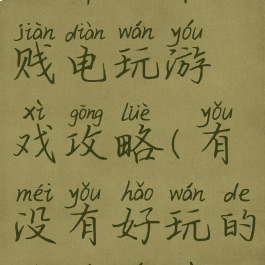 jiàn diàn wán yóu
贱电玩游
xì gōng lüè yǒu
戏攻略(有
méi yǒu hǎo wán de
没有好玩的